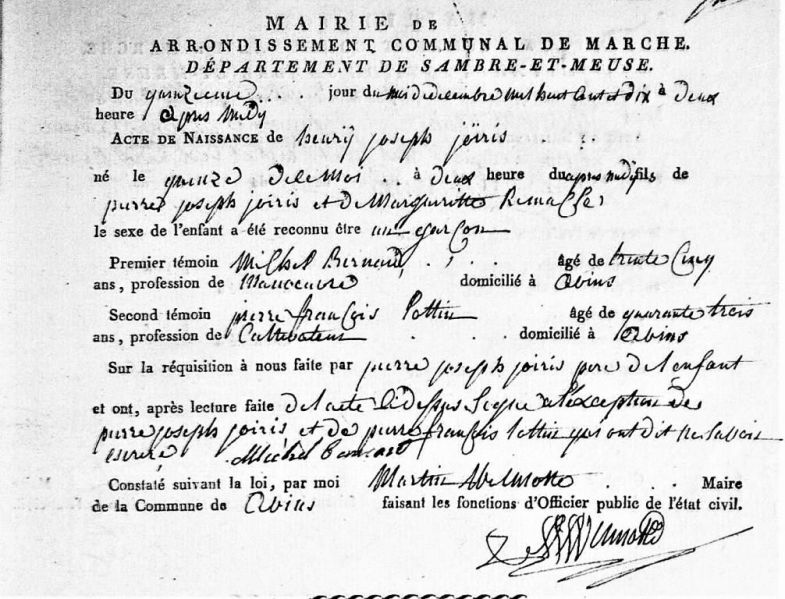 MAIRIE DE
ARRONDISSEMENT COMMUNAL DE MARCHE.
DÉPARTEMENT DE SAMBRE-ET-MEUSE.
Du quinzieme . . . jour du mois de decembre mil huit cent et dix à deux
heure apres midy
ACTE DE NAISSANCE de henry joseph joiris . . .
né le quinze de ce moi . . à deux heure du apres midy fils de
pierre joseph joiris et de Margueritte Remacle
le sexe de l'enfant a été reconnu être un garçon
Premier témoin Michel Bernard , . . âgé de trente Cinq
ans, profession de Manoeuvre domicilié à abins
Second témoin pierre françois Pottin âgé de quarante trois
ans, profession de Cultivateur . . . domicilié à abins
Sur la réquisition à nous faite par pierre joseph joiris pere de l'enfant
et ont, après lecture faite de l'acte Cidessus Signé a l'exception de
pierre joseph joiris et de pierre françois Pottin qui ont dit ne savoir
escrire Michel
Constaté suivant la loi, par moi Martin . . . Maire
de la Commune de abins faisant les fonctions d'Officier public de l'état civil.